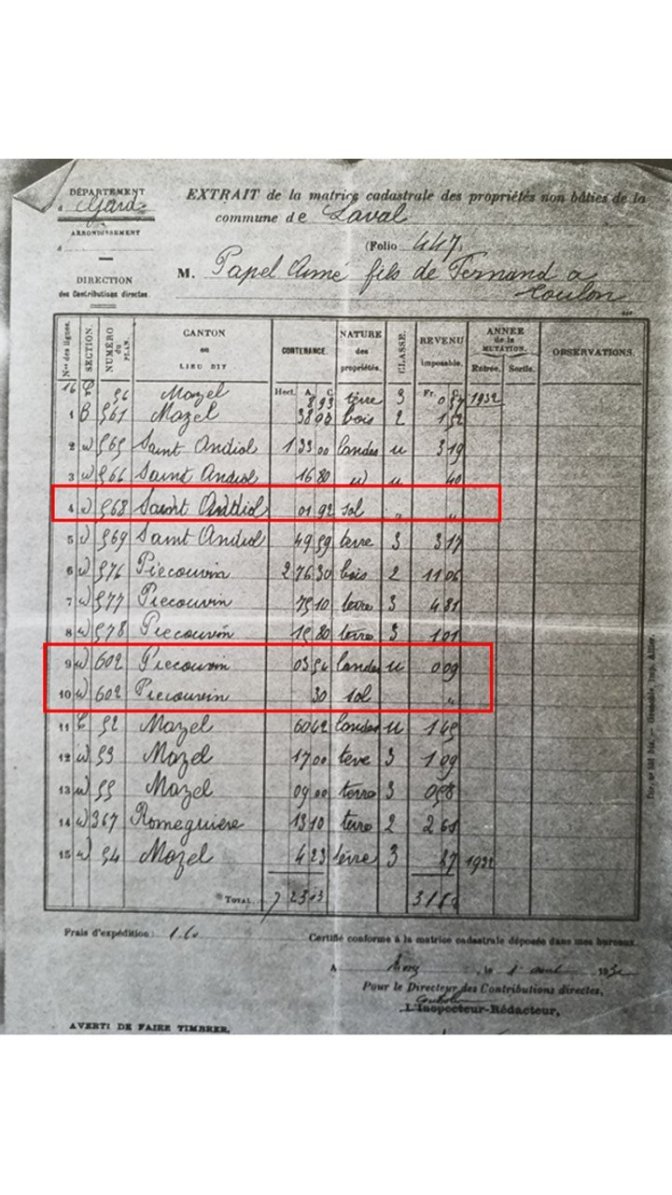 DÉPARTEMENT
d Gard
ARRONDISSEMENT
d
DIRECTION
des Contributions directes.
EXTRAIT de la matrice cadastrale des propriétés non bâties de la
commune de Laval
(Folio 447)
M. Papel Aimé fils de Fernand a
Toulon
Nos des lignes. SECTION. NUMÉRO du PLAN. CANTON ou LIEU DIT CONTENANCE. NATURE des propriétés. CLASSE. REVENU imposable. ANNÉE de la MUTATION. Entrée. Sortie. OBSERVATIONS.
Hect. A. C. Fr. C.
16 C 56 Mazel 8 93 terre 3 0 57 1932
1 B 561 Mazel 38 90 bois 2 1 52
2 " 565 Saint Andiol 1 33 00 landes u 3 19
3 " 566 Saint Andiol 16 80 " u 40
4 " 568 Saint Andiol 01 92 sol " "
5 " 569 Saint Andiol 49 59 terre 3 3 17
6 " 576 Piecouvin 2 76 30 bois 2 11 05
7 " 577 Piecouvin 75 10 terre 3 4 81
8 " 578 Piecouvin 15 80 terre 3 1 01
9 " 602 Piecouvin 03 54 landes u 0 09
10 " 602 Piecouvin 30 sol "
11 C 52 Mazel 60 62 landes u 1 45
12 " 53 Mazel 17 00 terre 3 1 09
13 " 55 Mazel 09 00 terre 3 0 58
14 " 367 Romeguière 13 10 terre 2 2 61
15 " 54 Mazel 4 23 terre 3 27 1932
TOTAL 7 23 13
Frais d'expédition : 1.60
Certifié conforme à la matrice cadastrale déposée dans mes bureaux.
A , le 1 avril 193
Pour le Directeur des Contributions directes,
L'Inspecteur-Rédacteur,
AVERTI DE FAIRE TIMBRER.